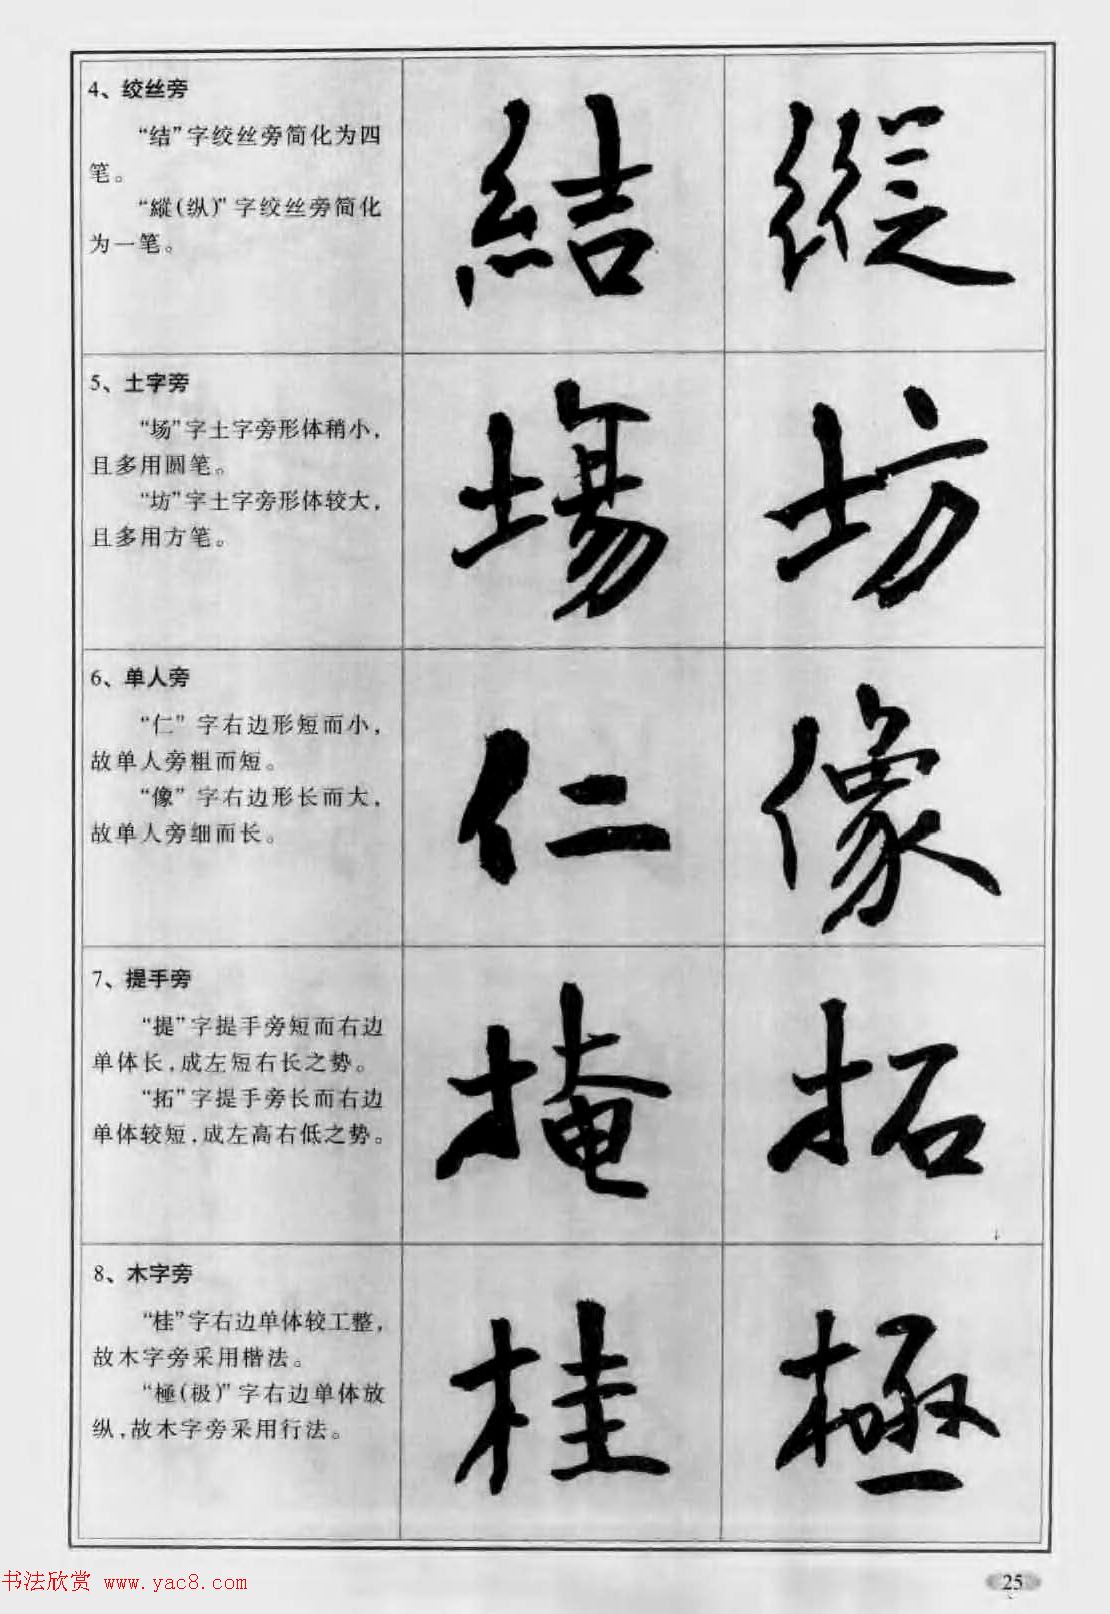 4、绞丝旁
“结”字绞丝旁简化为四
笔。
“縱(纵)”字绞丝旁简化
为一笔。
結 縱
5、土字旁
“场”字土字旁形体稍小，
且多用圆笔。
“坊”字土字旁形体较大，
且多用方笔。
場 坊
6、单人旁
“仁” 字右边形短而小，
故单人旁粗而短。
“像” 字右边形长而大，
故单人旁细而长。
仁 像
7、提手旁
“提”字提手旁短而右边
单体长，成左短右长之势。
“拓”字提手旁长而右边
单体较短，成左高右低之势。
掩 拓
8、木字旁
“桂”字右边单体较工整，
故木字旁采用楷法。
“極(极)”字右边单体放
纵，故木字旁采用行法。
桂 極
书法欣赏 www.yac8.com
25